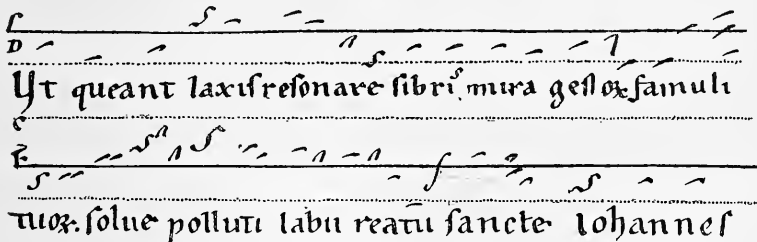 D
Ut queant laxiſ reſonare fibriſ. mira geſtoꝝ famuli
C
F
tuoꝝ. ſolue polluti labii reatū ſancte Iohanneſ